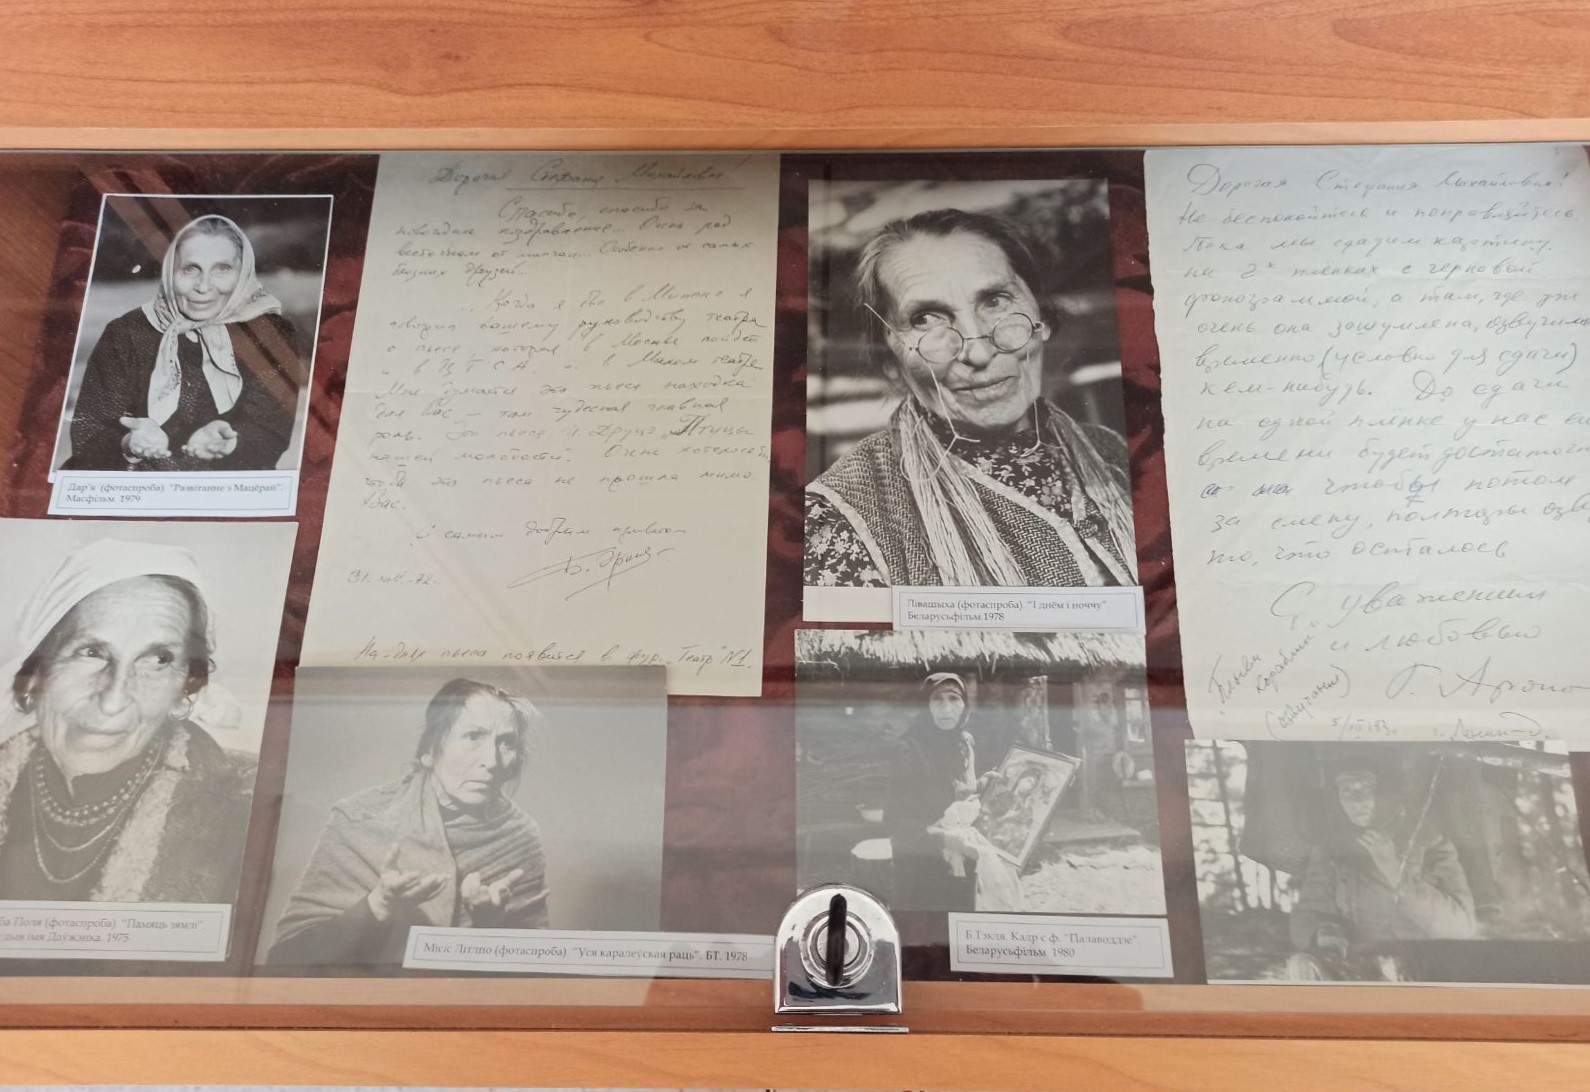 Дар'я (фотаспроба). "Развітанне з Мацёрай".
Масфільм. 1979
Дорогая Стефания Михайловна!
Спасибо, спасибо за
новогоднее поздравление... Очень рад
весточкам от минчан... Особенно от самых
близких друзей...
...Когда я был в Минске я
говорил вашему руководству театра
о пьесе, которая в Москве пойдет
и в ЦТСА и в Малом театре.
Мне думается это пьеса находка
для Вас — там чудесная главная
роль. Это пьеса И. Друцэ „Птицы
нашей молодости". Очень хотелось бы,
чтоб эта пьеса не прошла мимо
Вас.
С самым добрым приветом
31. 72.
На-днях пьеса появится в жур. „Театр" №1.
Лівашыха (фотаспроба). "І днём і ноччу".
Беларусьфільм.1978
Дорогая Стефания Михайловна!
Не беспокойтесь и поправляйтесь.
Пока мы сдадим картину
на 2х плёнках с черновой
фонограммой, а там, где уж
очень она зашумлена, озвучим
временно (условно для сдачи)
кем-нибудь. До сдачи
на одной плёнке у нас
времени будет достаточно
чтобы потом
за смену, полторы
то, что осталось
С уважением
и любовью
кораблик"
(озвучание)
5/VII
ба Поля (фотаспроба). "Памяць зямлі"
імя Даўжэнка. 1975
Місіс Літлпо (фотаспроба). "Уся каралеўская раць". БТ. 1978
Б.Тэкля. Кадр с ф. "Палаводдзе"
Беларусьфільм. 1980